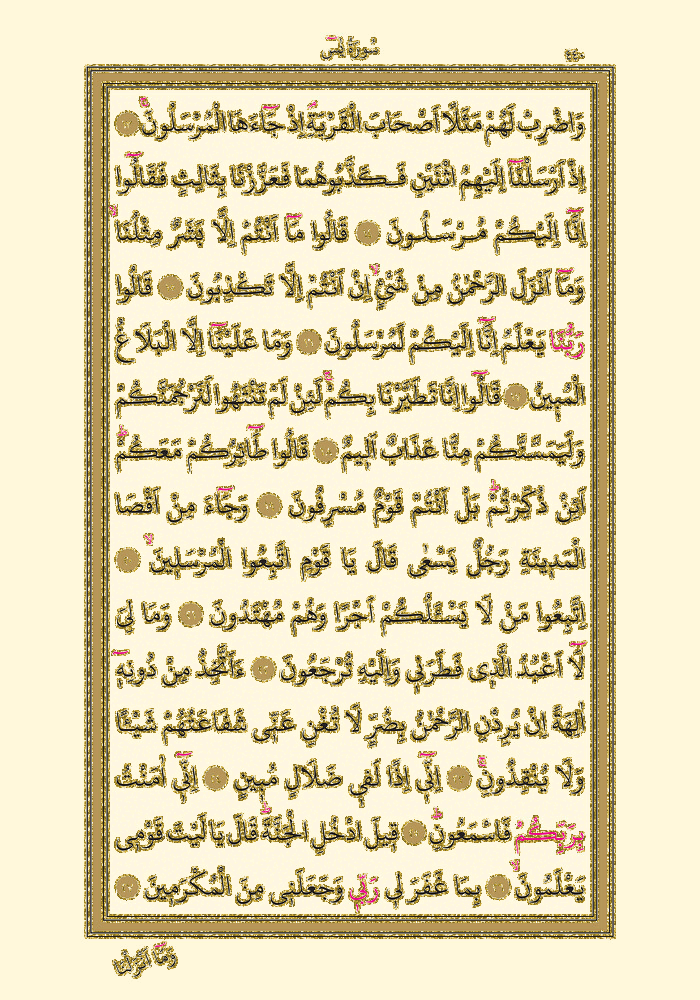 سُورَةُ يٰسٓ
٤٤٠
وَاضْرِبْ لَهُمْ مَثَلًا أَصْحَابَ الْقَرْيَةِ إِذْ جَاءَهَا الْمُرْسَلُونَ
إِذْ أَرْسَلْنَا إِلَيْهِمُ اثْنَيْنِ فَكَذَّبُوهُمَا فَعَزَّزْنَا بِثَالِثٍ فَقَالُوا
إِنَّا إِلَيْكُمْ مُرْسَلُونَ ۝ قَالُوا مَا أَنْتُمْ إِلَّا بَشَرٌ مِثْلُنَا
وَمَا أَنْزَلَ الرَّحْمٰنُ مِنْ شَيْءٍ إِنْ أَنْتُمْ إِلَّا تَكْذِبُونَ ۝ قَالُوا
رَبُّنَا يَعْلَمُ إِنَّا إِلَيْكُمْ لَمُرْسَلُونَ ۝ وَمَا عَلَيْنَا إِلَّا الْبَلَاغُ
الْمُبِينُ ۝ قَالُوا إِنَّا تَطَيَّرْنَا بِكُمْ لَئِنْ لَمْ تَنْتَهُوا لَنَرْجُمَنَّكُمْ
وَلَيَمَسَّنَّكُمْ مِنَّا عَذَابٌ أَلِيمٌ ۝ قَالُوا طَائِرُكُمْ مَعَكُمْ
أَئِنْ ذُكِّرْتُمْ بَلْ أَنْتُمْ قَوْمٌ مُسْرِفُونَ ۝ وَجَاءَ مِنْ أَقْصَا
الْمَدِينَةِ رَجُلٌ يَسْعٰى قَالَ يَا قَوْمِ اتَّبِعُوا الْمُرْسَلِينَ ۝
اِتَّبِعُوا مَنْ لَا يَسْـَٔلُكُمْ أَجْرًا وَهُمْ مُهْتَدُونَ ۝ وَمَا لِيَ
لَا أَعْبُدُ الَّذِى فَطَرَنِى وَإِلَيْهِ تُرْجَعُونَ ۝ ءَأَتَّخِذُ مِنْ دُونِهِ
اٰلِهَةً إِنْ يُرِدْنِ الرَّحْمٰنُ بِضُرٍّ لَا تُغْنِ عَنِّى شَفَاعَتُهُمْ شَيْـًٔا
وَلَا يُنْقِذُونِ ۝ إِنِّى إِذًا لَفِى ضَلَالٍ مُبِينٍ ۝ إِنِّى اٰمَنْتُ
بِرَبِّكُمْ فَاسْمَعُونِ ۝ قِيلَ ادْخُلِ الْجَنَّةَ قَالَ يَا لَيْتَ قَوْمِى
يَعْلَمُونَ ۝ بِمَا غَفَرَ لِى رَبِّى وَجَعَلَنِى مِنَ الْمُكْرَمِينَ ۝
وَمَا أَنْزَلْنَا